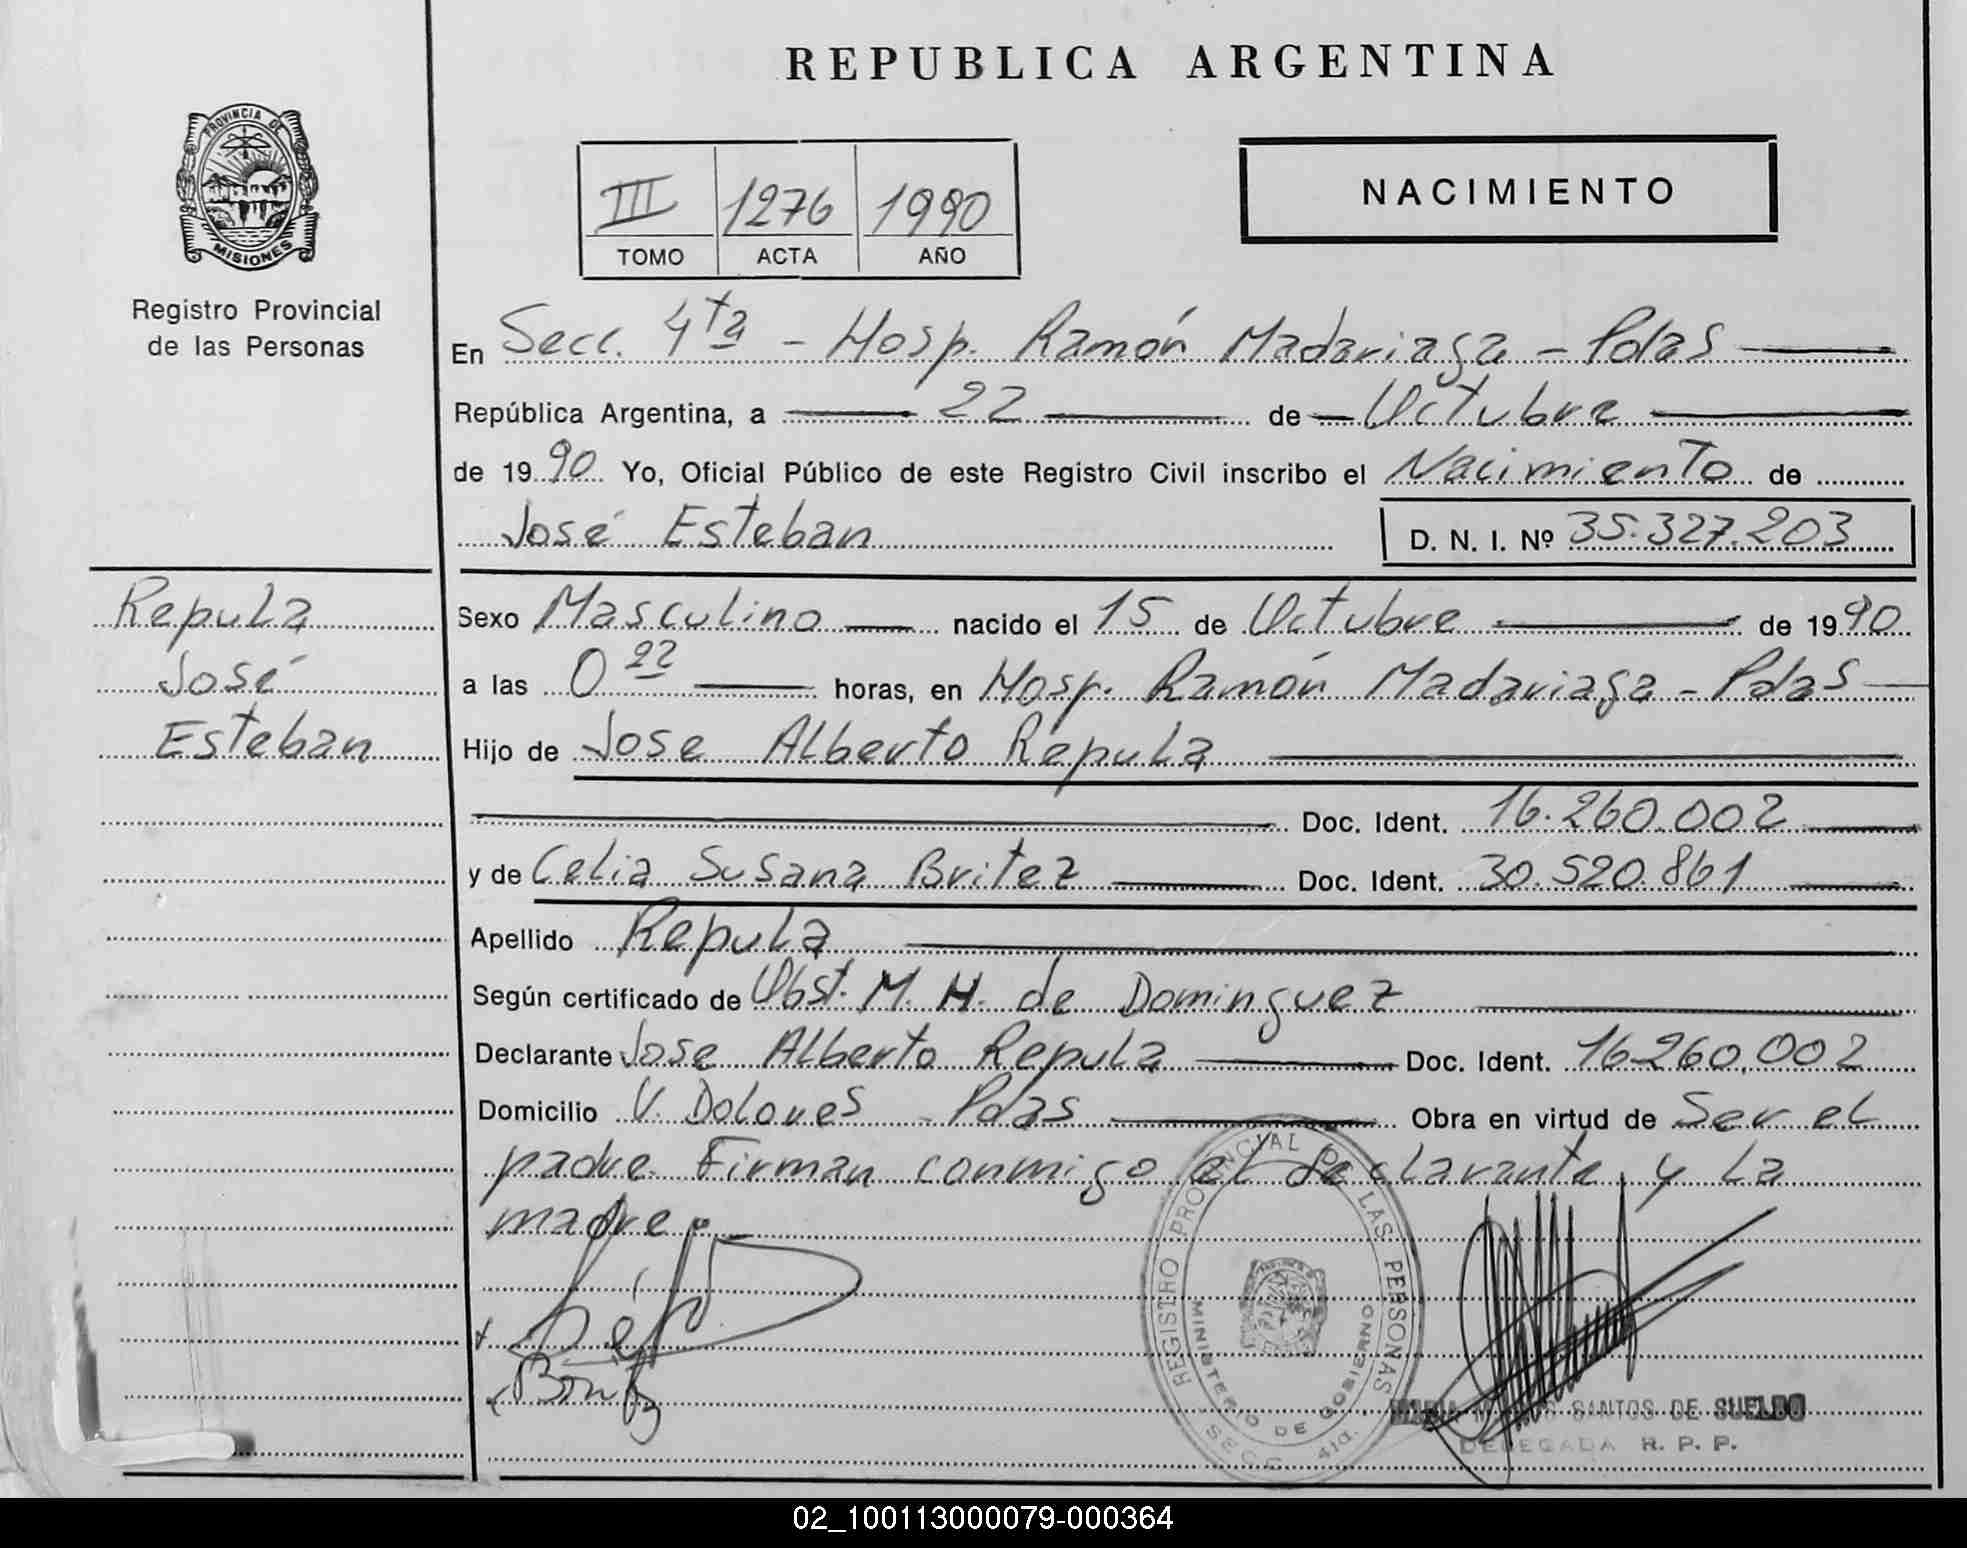 REPUBLICA ARGENTINA
PROVINCIA DE
MISIONES
Registro Provincial
de las Personas
III 1276 1990
TOMO ACTA AÑO
NACIMIENTO
En Secc. 4ta - Hosp. Ramón Madariaga - Pdas
República Argentina, a 22 de Octubre
de 1990 Yo, Oficial Público de este Registro Civil inscribo el Nacimiento de
José Esteban D. N. I. Nº 35.327.203
Repula
José
Esteban
Sexo Masculino nacido el 15 de Octubre de 1990
a las 0 22 horas, en Hosp. Ramón Madariaga - Pdas
Hijo de Jose Alberto Repula
Doc. Ident. 16.260.002
y de Celia Susana Britez Doc. Ident. 30.520.861
Apellido Repula
Según certificado de Obst. M. H. de Dominguez
Declarante Jose Alberto Repula Doc. Ident. 16.260.002
Domicilio V. Dolores - Pdas Obra en virtud de Ser el
padre. Firman conmigo el declarante y la
madre.
REGISTRO PROVINCIAL DE LAS PERSONAS
MINISTERIO DE GOBIERNO
SECC. 4ta.
SANTOS DE SUELDO
DELEGADA R. P. P.
02_100113000079-000364